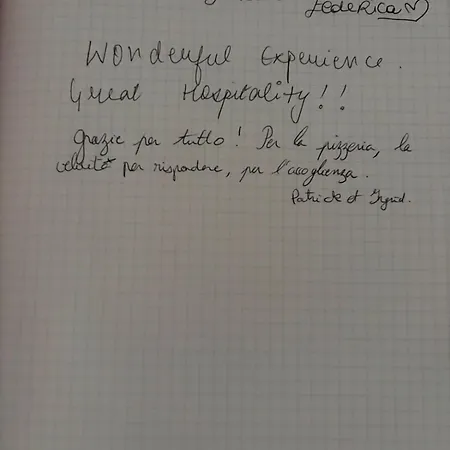 FedeRica
Wonderful Experience.
Great Hospitality!!
Grazie per tutto! Per la pizzeria, la
velocità per rispondere, per l'accoglienza.
Patrick et Ingrid.